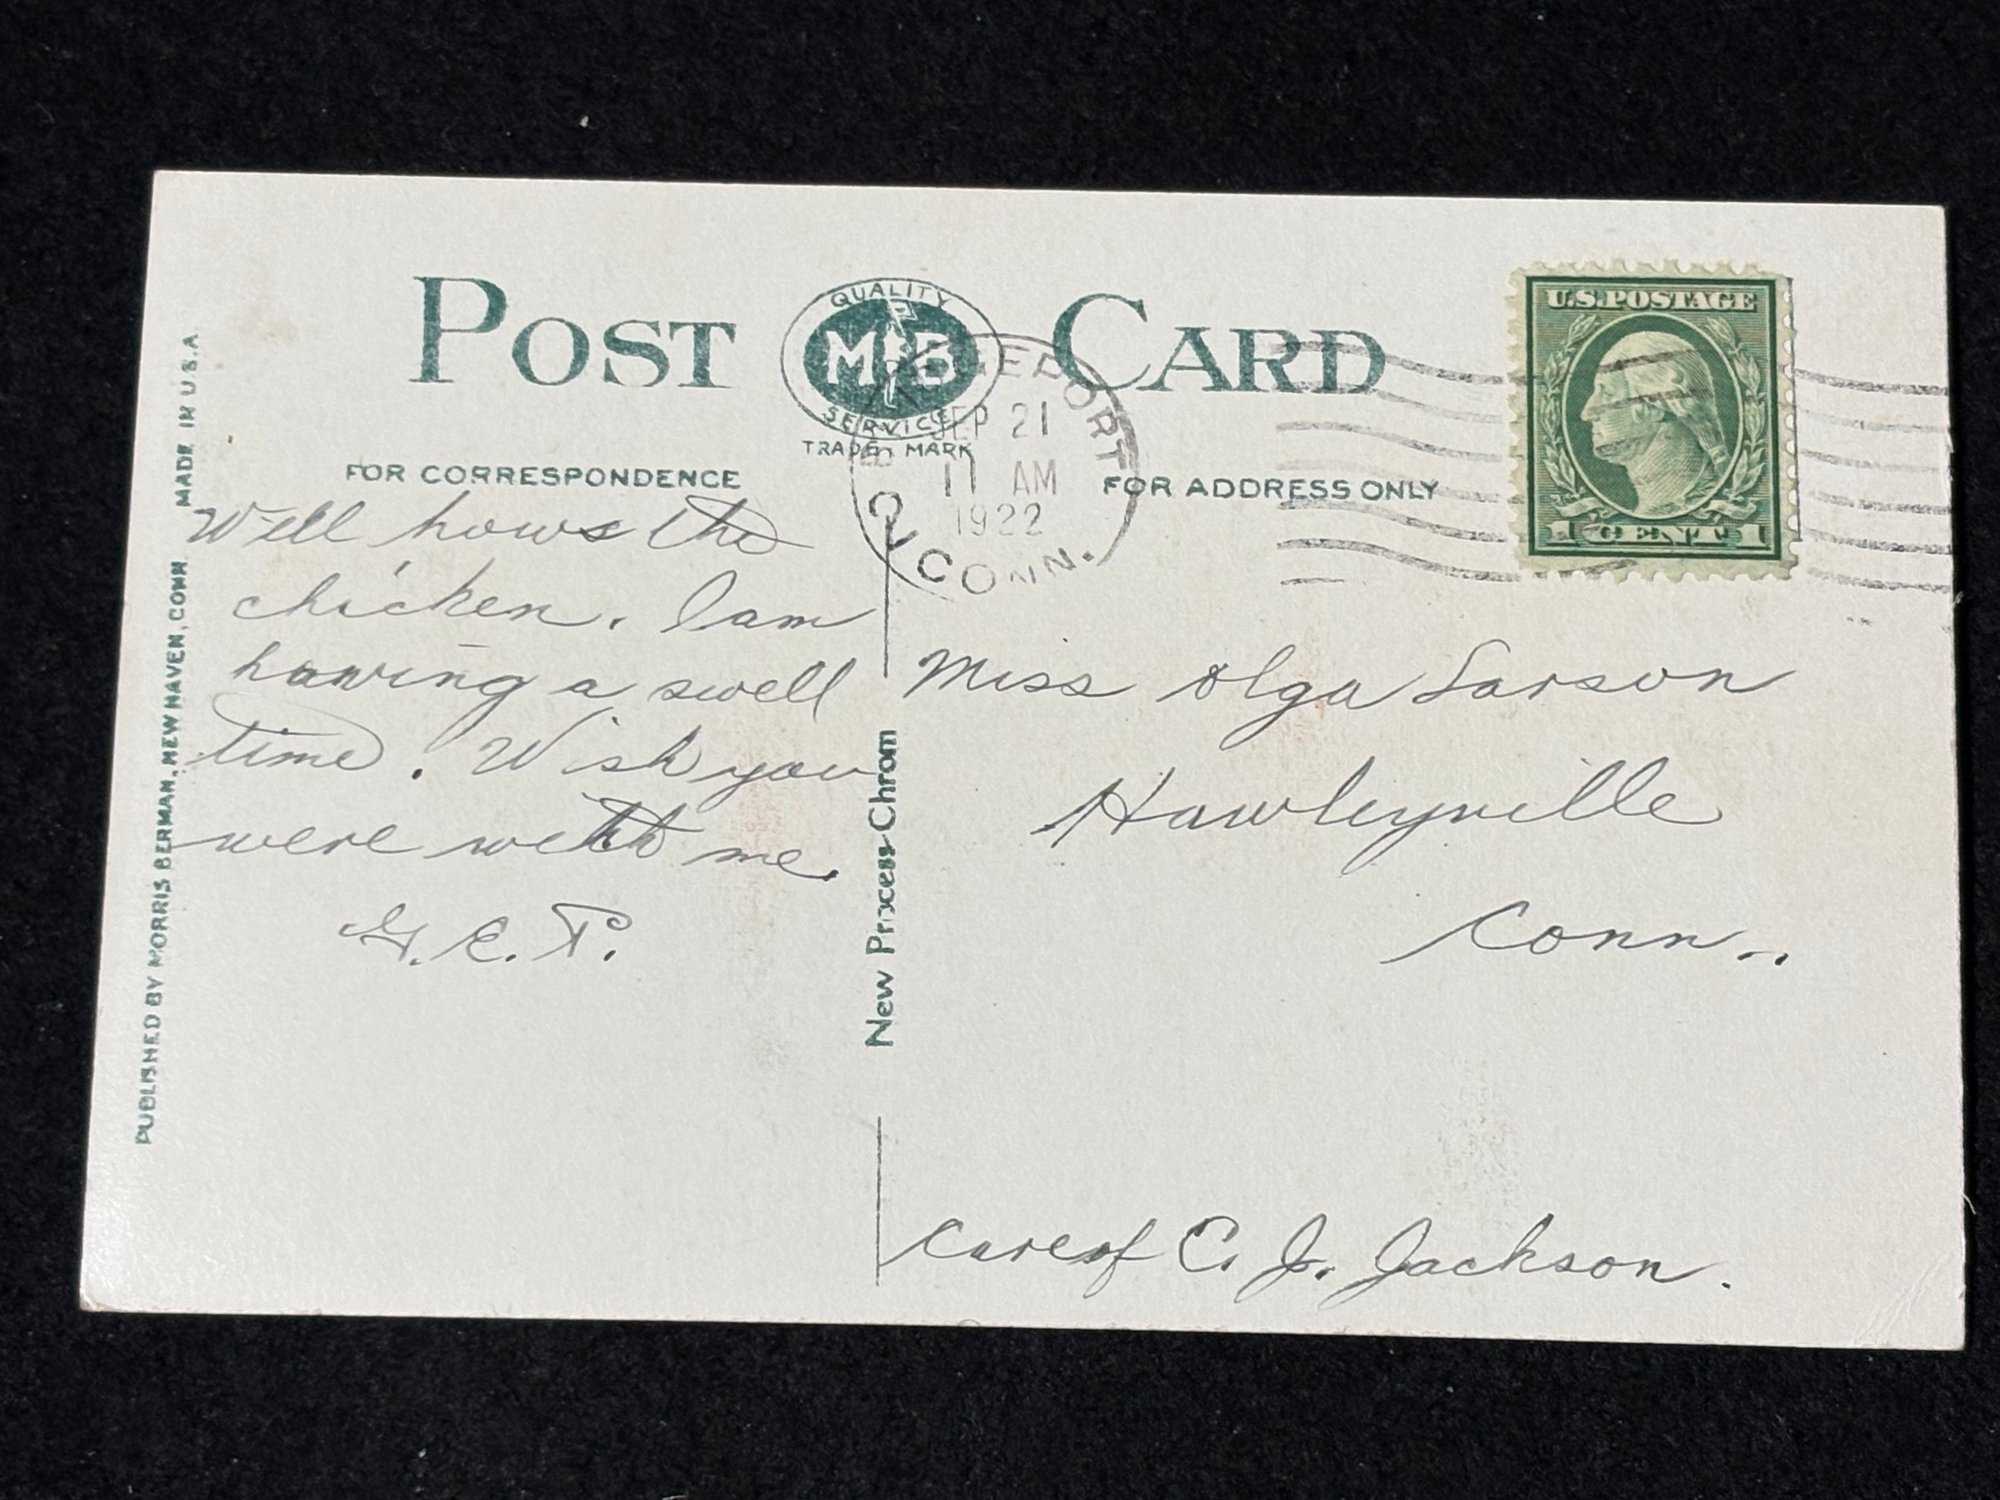 POST CARD
QUALITY
M B
SERVICE
TRADE MARK
BRIDGEPORT
SEP 21
11 AM
1922
CONN.
U.S. POSTAGE
1 CENT 1
FOR CORRESPONDENCE
FOR ADDRESS ONLY
Well hows the
chicken. I am
having a swell
time. Wish you
were with me.
Miss Olga Larson
Hawleyville
Conn..
Care of C. J. Jackson.
New Process-Chrom
PUBLISHED BY MORRIS BERMAN, NEW HAVEN, CONN. MADE IN U.S.A